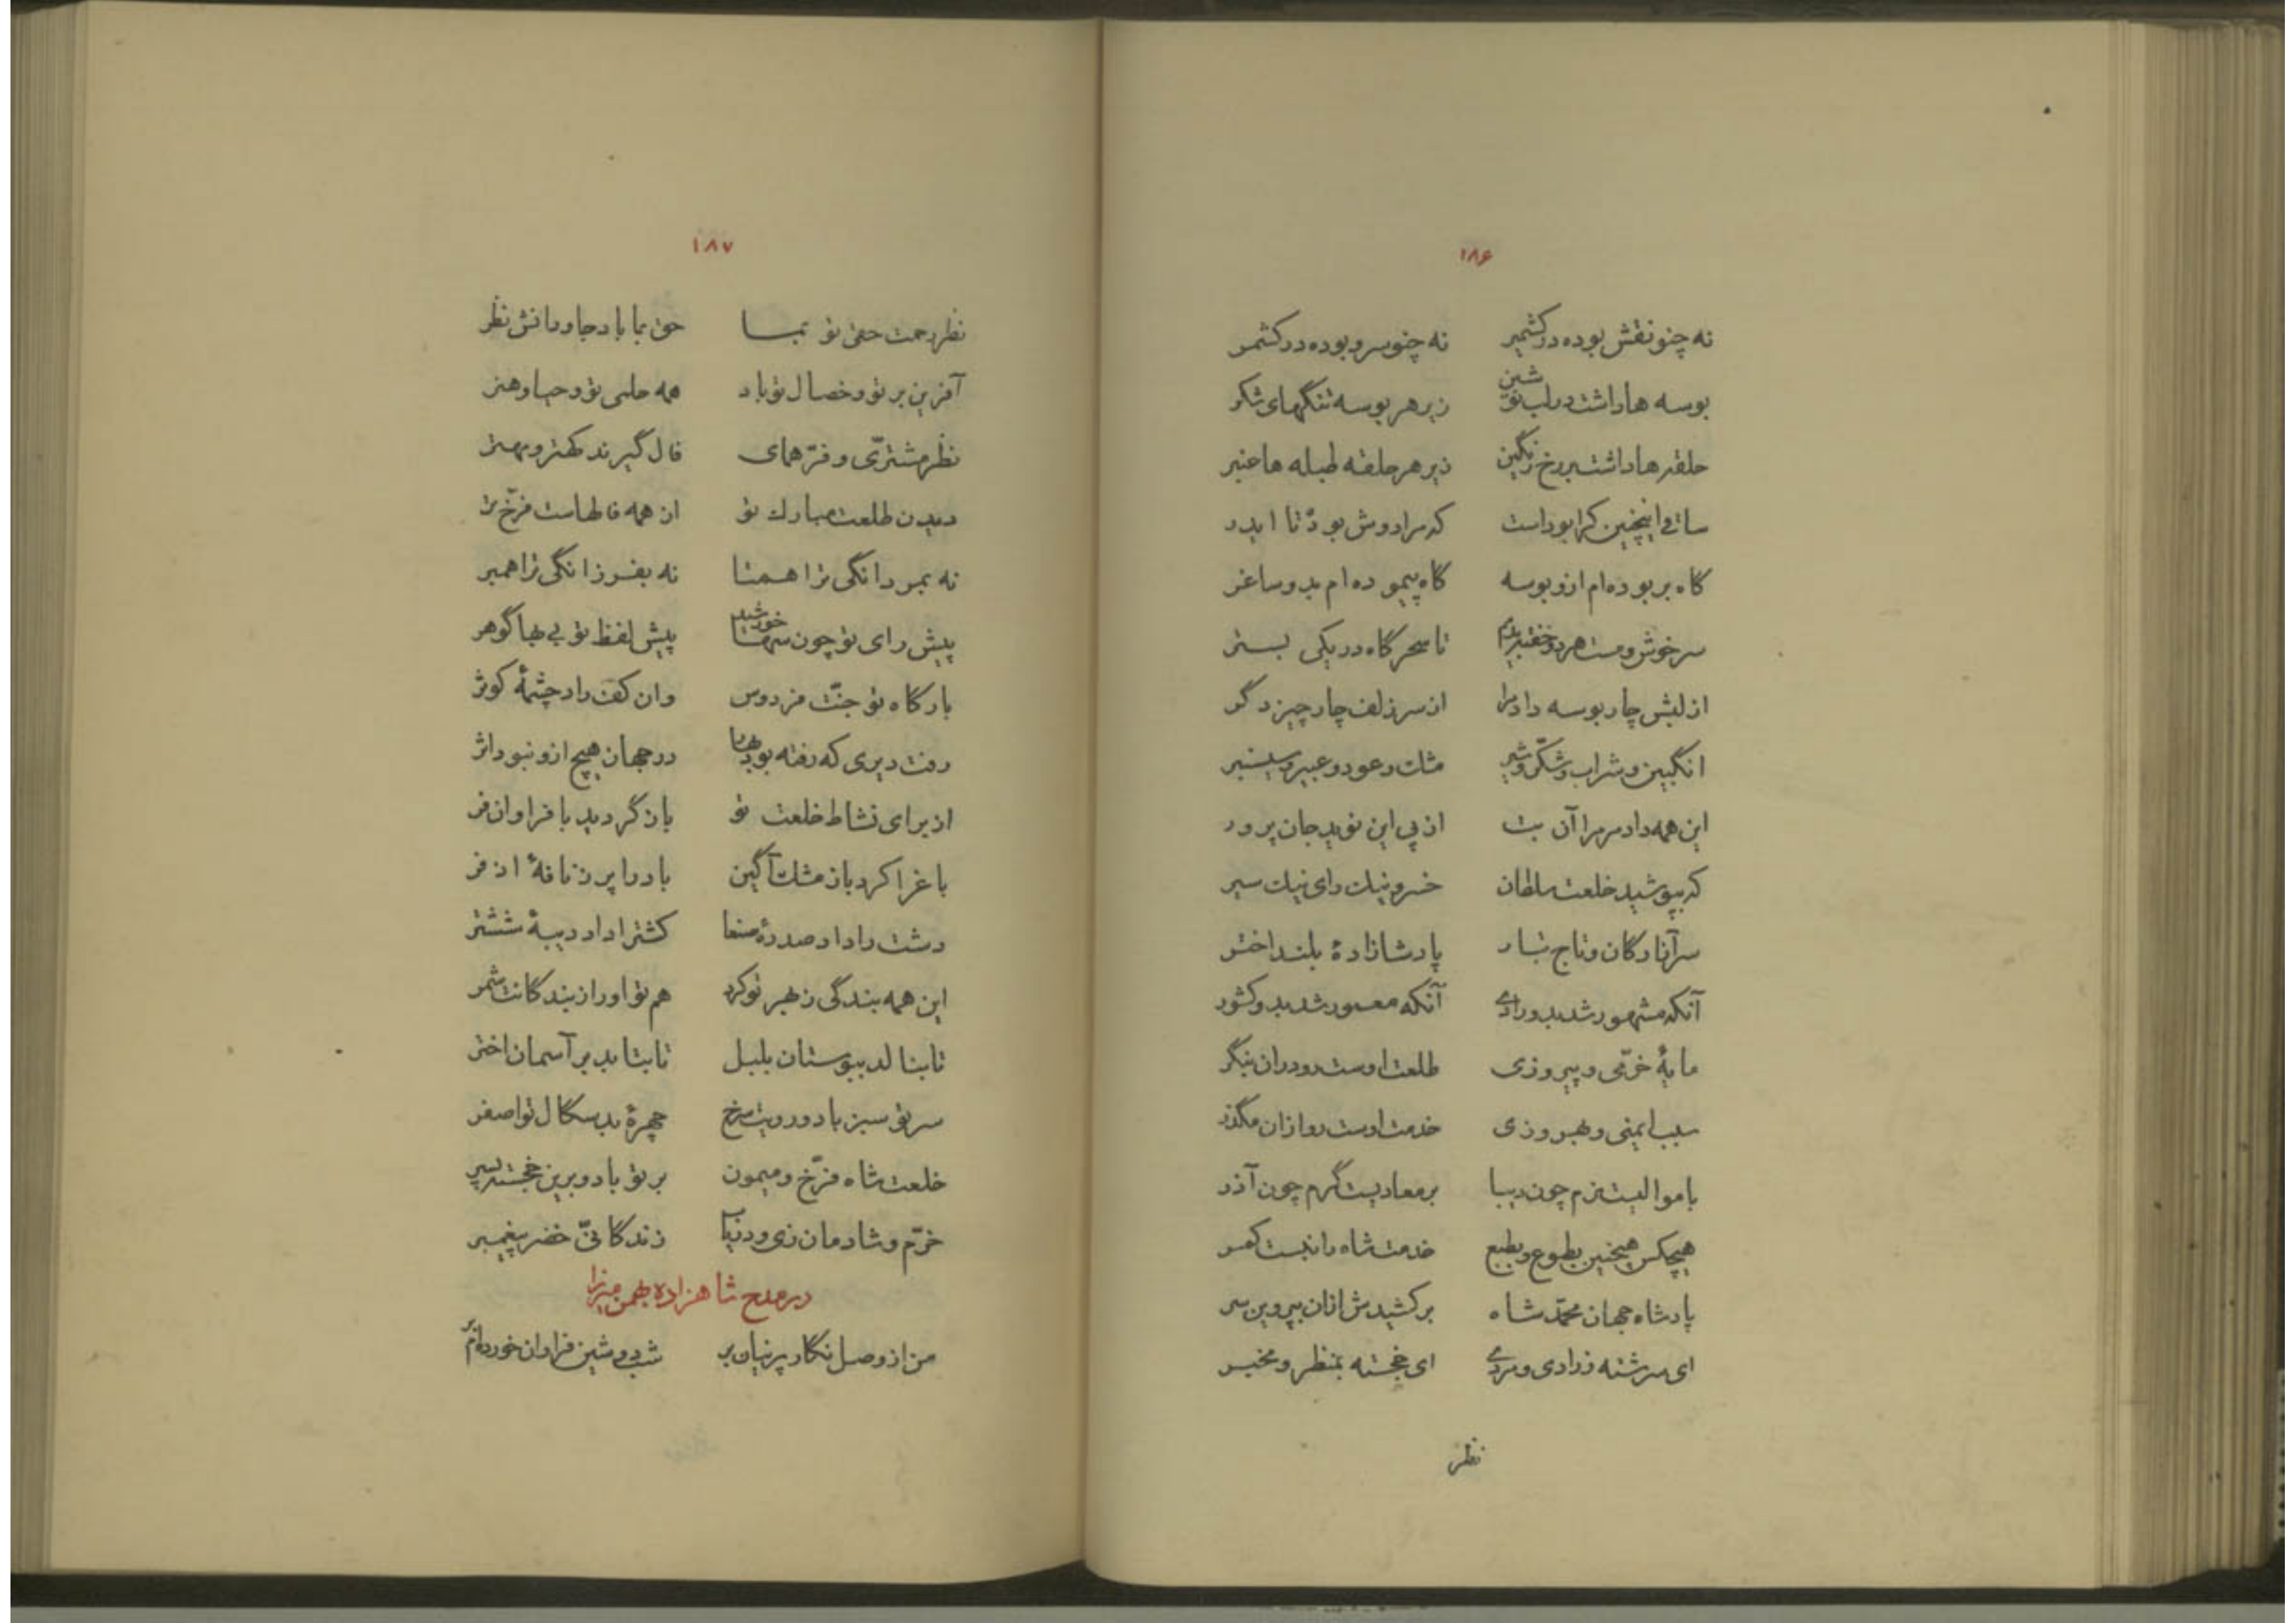 ۱۸۶
نه چنو نقش بوده در کشمیر نه چنو سرو بوده در کشمر
بوسه ها داشت در لب نوشین زیر هر بوسه تنگهای شکر
حلقه ها داشت بر رخ رنگین زیر هر حلقه طبله ها عنبر
ساقی اینچنین کرا بود است که مرا دوش بود تا ایدر
گاه بربوده ام ازو بوسه گاه پیموده ام بدو ساغر
سرخوش و مست هر دو خفتیدیم تا سحرگاه در یکی بستر
از لبش چار بوسه داد مرا از سر زلف چار چیز دگر
انگبین و شراب و شکّر و شیر مشک و عود و عبیر و سیسنبر
این همه داد مر مرا آن بت از پی این نوید جان پرور
که بپوشید خلعت سلطان خسرو نیک رای نیک سیر
سر آزادگان و تاج تبار پادشازادهٔ بلند اختر
آنکه مشهور شد بدو رادی آنکه معمور شد بدو کشور
مایهٔ خرّمی و پیروزی طلعت اوست رو دران بنگر
سبب ایمنی و بهروزی خدمت اوست رو ازان مگذر
با موالیت نرم چون دیبا بر معادیت گرم چون آذر
هیچکس همچنین بطوع و بطبع خدمت شاه را نبست کمر
پادشاه جهان محمّد شاه برکشیدش ازان بپروین سر
ای سرشته ز رادی و مردی ای خجسته بمنظر و مخبر
نظر
۱۸۷
نظر رحمت حقی تو بما حق بما باد جاودانش نظر
آفرین بر تو و خصال تو باد همه حلمی تو و حیا و هنر
نظر مشتری و فرّ همای فال گیرند کهتر و مهتر
دیدن طلعت مبارک تو از همه فالهاست فرّخ تر
نه بمردانگی ترا همتا نه بفرزانگی ترا همبر
پیش رای تو چون سها خورشید پیش لفظ تو بی بها گوهر
بارگاه تو جنّت فردوس وان کف راد چشمهٔ کوثر
رفت دیری که رفته بود بهار در جهان هیچ ازو نبود اثر
از برای نشاط خلعت تو بازگردید با فراوان فر
باغ را کرد باز مشک آگین باد را پر ز نافهٔ اذفر
دشت را داد صدرهٔ صنعا کشت را داد دیبهٔ ششتر
این همه بندگی ز بهر تو کرد هم تو او را ز بندگانت شمر
تا بنالد ببوستان بلبل تا بتابد بر آسمان اختر
سر تو سبز باد و رویت سرخ چهرهٔ بدسگال تو اصفر
خلعت شاه فرّخ و میمون بر تو باد و برین خجسته پسر
خرّم و شادمان زی و دریاب زندگانیّ خضر پیغمبر
در مدح شاهزاده بهمن میرزا
من از وصل نگار پرنیان بر شب دوشین فراوان خورده ام بر